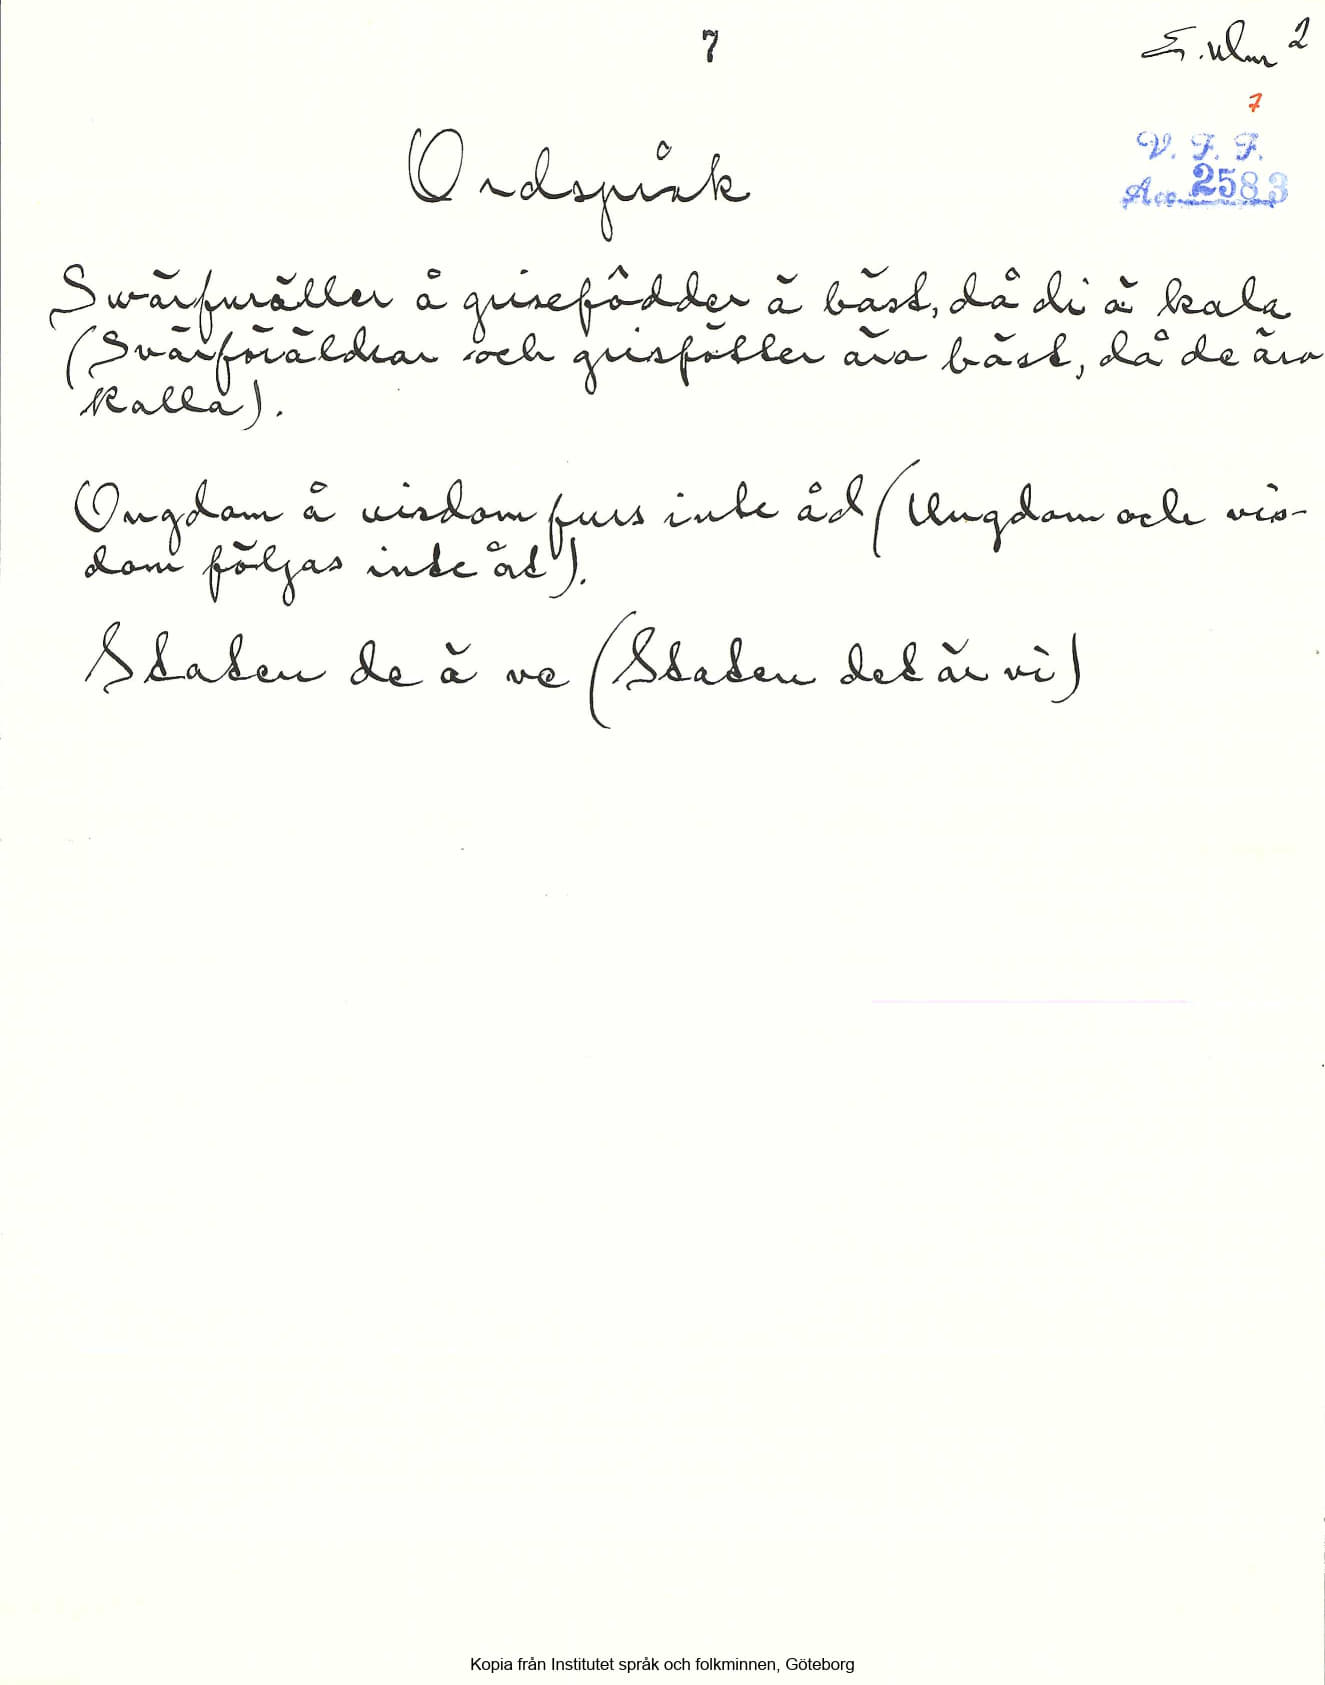 7
2
7
V. F. F.
Acc. 2583
Ordspråk
Swärfuräller å grisefödder ä bäst, då di ä kala
(Svärföräldrar och grisfötter äro bäst, då de äro
kalla).
Ongdom å visdom furs inte åd (Ungdom och vis-
dom följas inte åt).
Staten de ä ve (Staten det är vi)
Kopia från Institutet språk och folkminnen, Göteborg